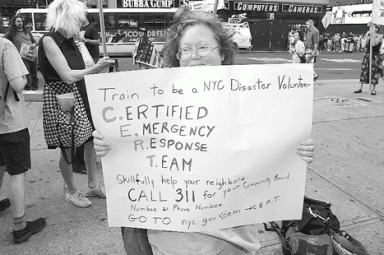 BUBBA GUMP
COMPUTERS CAMERAS
Train to be a NYC Disaster Volunteer
C.ERTIFIED
E.MERGENCY
R.ESPONSE
T.EAM
Skillfully help your neighbors
CALL 311 for your Community Board
Number & Phone Number.
GO TO nyc.gov/oem → C.E.R.T